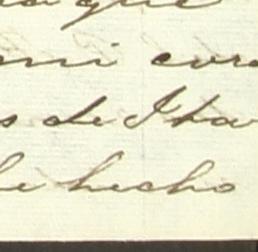 que
mi cora
s de Itav
le hecho